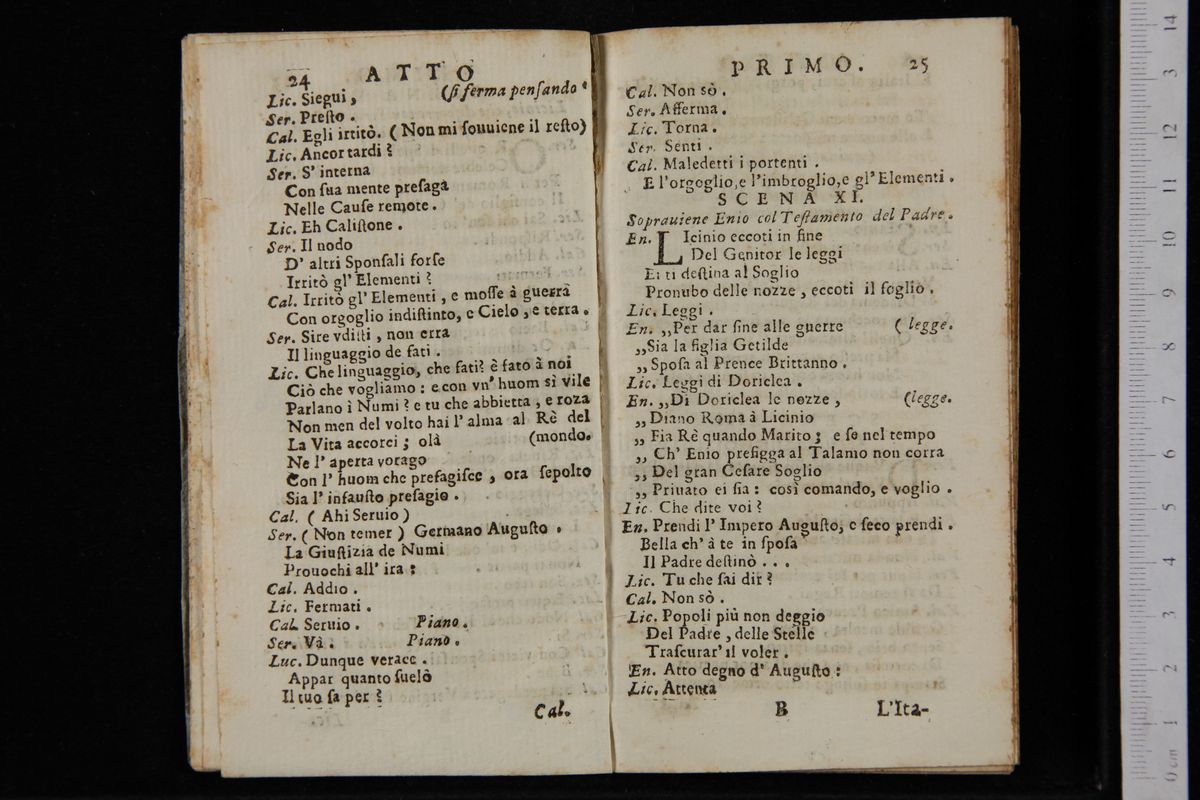 24 ATTO
Lic. Siegui, (ſi ferma penſando
Ser. Preſto.
Cal. Egli irritò. (Non mi ſouuiene il reſto)
Lic. Ancor tardi?
Ser. S' interna
Con ſua mente preſaga
Nelle Cauſe remote.
Lic. Eh Caliſtone.
Ser. Il nodo
D' altri Sponſali forſe
Irritò gl' Elementi?
Cal. Irritò gl' Elementi, e moſſe à guerra
Con orgoglio indiſtinto, e Cielo, e terra.
Ser. Sire vdiſti, non erra
Il linguaggio de fati.
Lic. Che linguaggio, che fati? è fato à noi
Ciò che vogliamo: e con vn' huom sì vile
Parlano i Numi? e tu che abbietta, e roza
Non men del volto hai l' alma al Rè del
La Vita accorci; olà (mondo.
Ne l' aperta vorago
Con l' huom che prefagiſce, ora ſepolto
Sia l' infauſto preſagio.
Cal. (Ahi Seruio)
Ser. (Non temer) Germano Auguſto.
La Giuſtizia de Numi
Prouochi all' ira:
Cal. Addio.
Lic. Fermati.
Cal. Seruio. Piano.
Ser. Và. Piano.
Luc. Dunque verace.
Appar quanto ſuelò
Il tuo ſa per?
Cal.
PRIMO. 25
Cal. Non sò.
Ser. Afferma.
Lic. Torna.
Ser. Senti.
Cal. Maledetti i portenti.
E l'orgoglio, e l'imbroglio, e gl' Elementi.
SCENA XI.
Soprauiene Enio col Teſtamento del Padre.
En. LIcinio eccoti in fine
Del Genitor le leggi
Ei ti deſtina al Soglio
Pronubo delle nozze, eccoti il foglio.
Lic. Leggi.
En. ,,Per dar fine alle guerre (legge.
,,Sia la figlia Getilde
,,Spoſa al Prence Brittanno.
Lic. Leggi di Doriclea.
En. ,,Di Doriclea le nozze, (legge.
,,Diano Roma à Licinio
,, Fia Rè quando Marito; e ſe nel tempo
,, Ch' Enio prefigga al Talamo non corra
,, Del gran Ceſare Soglio
,, Priuato ei ſia: così comando, e voglio.
Lic. Che dite voi?
En. Prendi l' Impero Auguſto, e ſeco prendi.
Bella ch' à te in ſpoſa
Il Padre deſtinò...
Lic. Tu che ſai dir?
Cal. Non sò.
Lic. Popoli più non deggio
Del Padre, delle Stelle
Traſcurar' il voler.
En. Atto degno d' Auguſto:
Lic. Attenta
B L'Ita-
14
3
12
11
10
9
8
7
6
5
4
3
2
1
0 cm